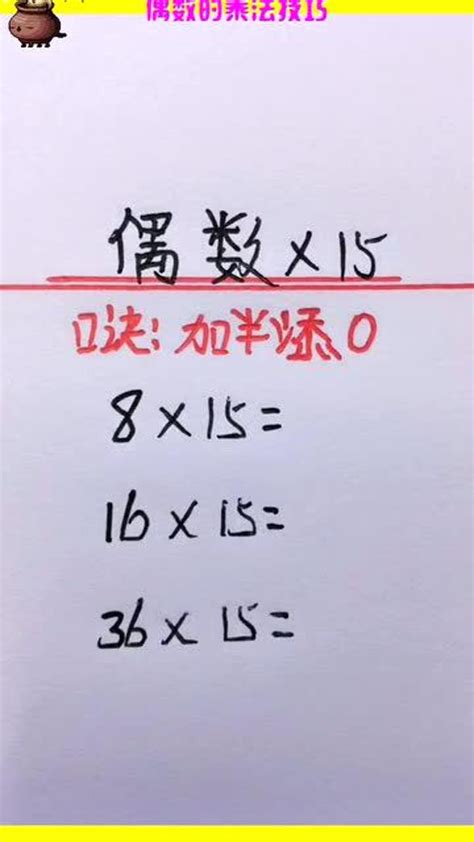 偶数的乘法技巧
偶数×15
口诀:加半添0
8×15=
16×15=
36×15=